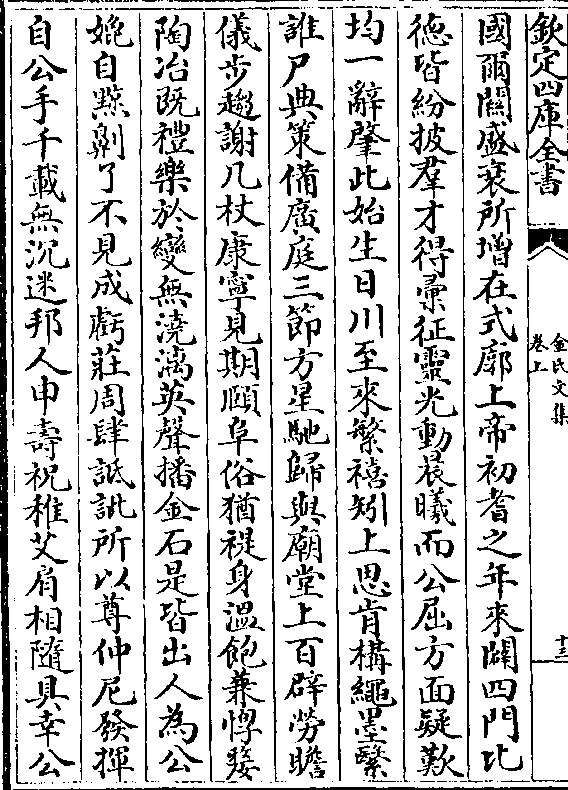 欽定四庫全書
金氏文集
卷上
十三
國爾闗盛衰所增在式廓上帝初耆之年來闢四門比
德皆紛披羣才得彚征靈光動晨曦而公屈方面疑歎
均一辭肇此始生日川至來繁禧矧上思肯構繩墨繄
誰尸典策備廣庭三節方星馳歸與廟堂上百辟勞瞻
儀步趨謝几杖康寧見期頤阜俗猶禔身溫飽兼惸嫠
陶冶既禮樂於變無澆漓英聲播金石是皆出人為公
娩自黥劓了不見成虧莊周肆詆訿所以尊仲尼發揮
自公手千載無沉迷邦人申壽祝稚艾肩相隨具幸公